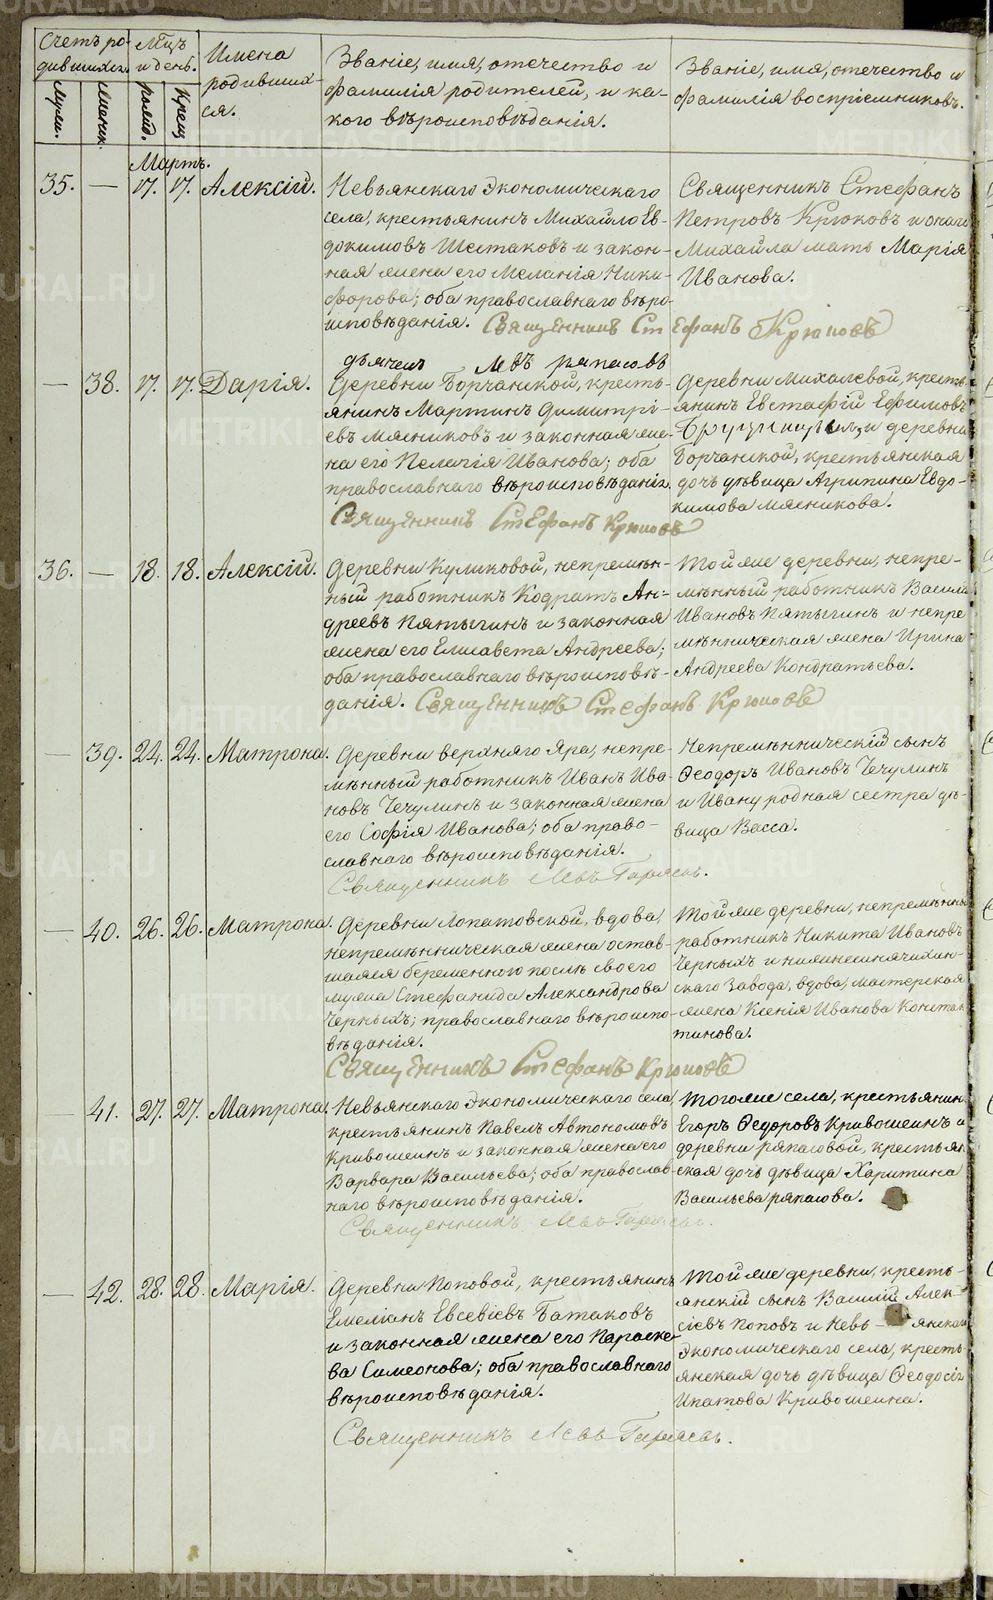 Счетъ ро-
дившихся.
Муж.
Женск.
Мѣцъ
и день.
рожд.
Крещ.
Имена
родивших-
ся.
Званіе, имя, отечество и
фамилія родителей, и ка-
кого вѣроисповѣданія.
Званіе, имя, отечество и
фамилія воспріемниковъ.
Мартъ.
35. — 17. 17. Алексій.
Невьянскаго Экономическаго
села, крестьянинъ Михайло Ев-
докимовъ Шестаковъ и закон-
ная жена его Меланія Ники-
форова; оба православнаго вѣро-
исповѣданія. Священникъ Стефанъ Крюковъ
дьячекъ Левъ ряпасовъ
Священникъ Стефанъ
Петровъ Крюковъ и онаго
Михайла мать Марія
Иванова.
— 38. 17. 17. Дарія.
Деревни Борчанской, кресть-
янинъ Мартинъ Димитрі-
евъ мясниковъ и законная же-
на его Пелагія Иванова; оба
православнаго вѣроисповѣданія.
Священникъ Стефанъ Крюковъ
Деревни Михалевой, кресть-
янинъ Евстафій Ефимовъ
и деревни
Борчанской, крестьянская
дочь дѣвица Агрипина Евдо-
кимова мясникова.
36. — 18. 18. Алексій.
Деревни Куликовой, непремѣн-
ный работникъ Кодратъ Ан-
дреевъ Пятыгинъ и законная
жена его Елисавета Андреева;
оба православнаго вѣроисповѣ-
данія. Священникъ Стефанъ Крюковъ
Той же деревни, непре-
мѣнный работникъ Василій
Ивановъ Пятыгинъ и непре
мѣнническая жена Ирина
Андреева Кондратьева.
— 39. 24. 24. Матрона.
Деревни верхняго Яра, непре-
мѣнный работникъ Иванъ Ива-
новъ Чечулинъ и законная жена
его Софія Иванова; оба право-
славнаго вѣроисповѣданія.
Священникъ Левъ
Непремѣнническій сынъ
Ѳеодоръ Ивановъ Чечулинъ
и Ивану родная сестра дѣ-
вица Васса.
— 40. 26. 26. Матрона.
Деревни Лопатовской, вдова,
непремѣнническая жена остав-
шаяся беременною послѣ своего
мужа Стефанида Александрова
Черныхъ; православнаго вѣроиспо-
вѣданія.
Священникъ Стефанъ Крюковъ
Той же деревни, непремѣнный
работникъ Никита Ивановъ
Черныхъ и нижнесинячихин-
скаго Завода, вдова, мастерская
жена Ксенія Иванова Констан
тинова.
— 41. 27. 27. Матрона.
Невьянскаго Экономическаго села,
крестьянинъ Павелъ Автономовъ
Кривошеинъ и законная жена его
Варвара Васильева; оба православ-
наго вѣроисповѣданія.
Священникъ Левъ
Того же села, крестьянинъ
Егоръ Ѳедоровъ Кривошеинъ и
деревни ряпасовой, крестьян-
ская дочь дѣвица Харитина
Васильева ряпасова.
— 42. 28. 28. Марія.
Деревни Поповой, крестьянинъ
Емеліанъ Евсевіевъ Батаковъ
и законная жена его Параске-
ва Симеонова; оба православнаго
вѣроисповѣданія.
Священникъ Левъ
Той же деревни, кресть-
янскій сынъ Василій Алек-
сіевъ Поповъ и Невь- янскаго
Экономическаго села, кресть-
янская дочь дѣвица Ѳеодосія
Ипатова Кривошеина.
METRIKI.GASO-URAL.RU